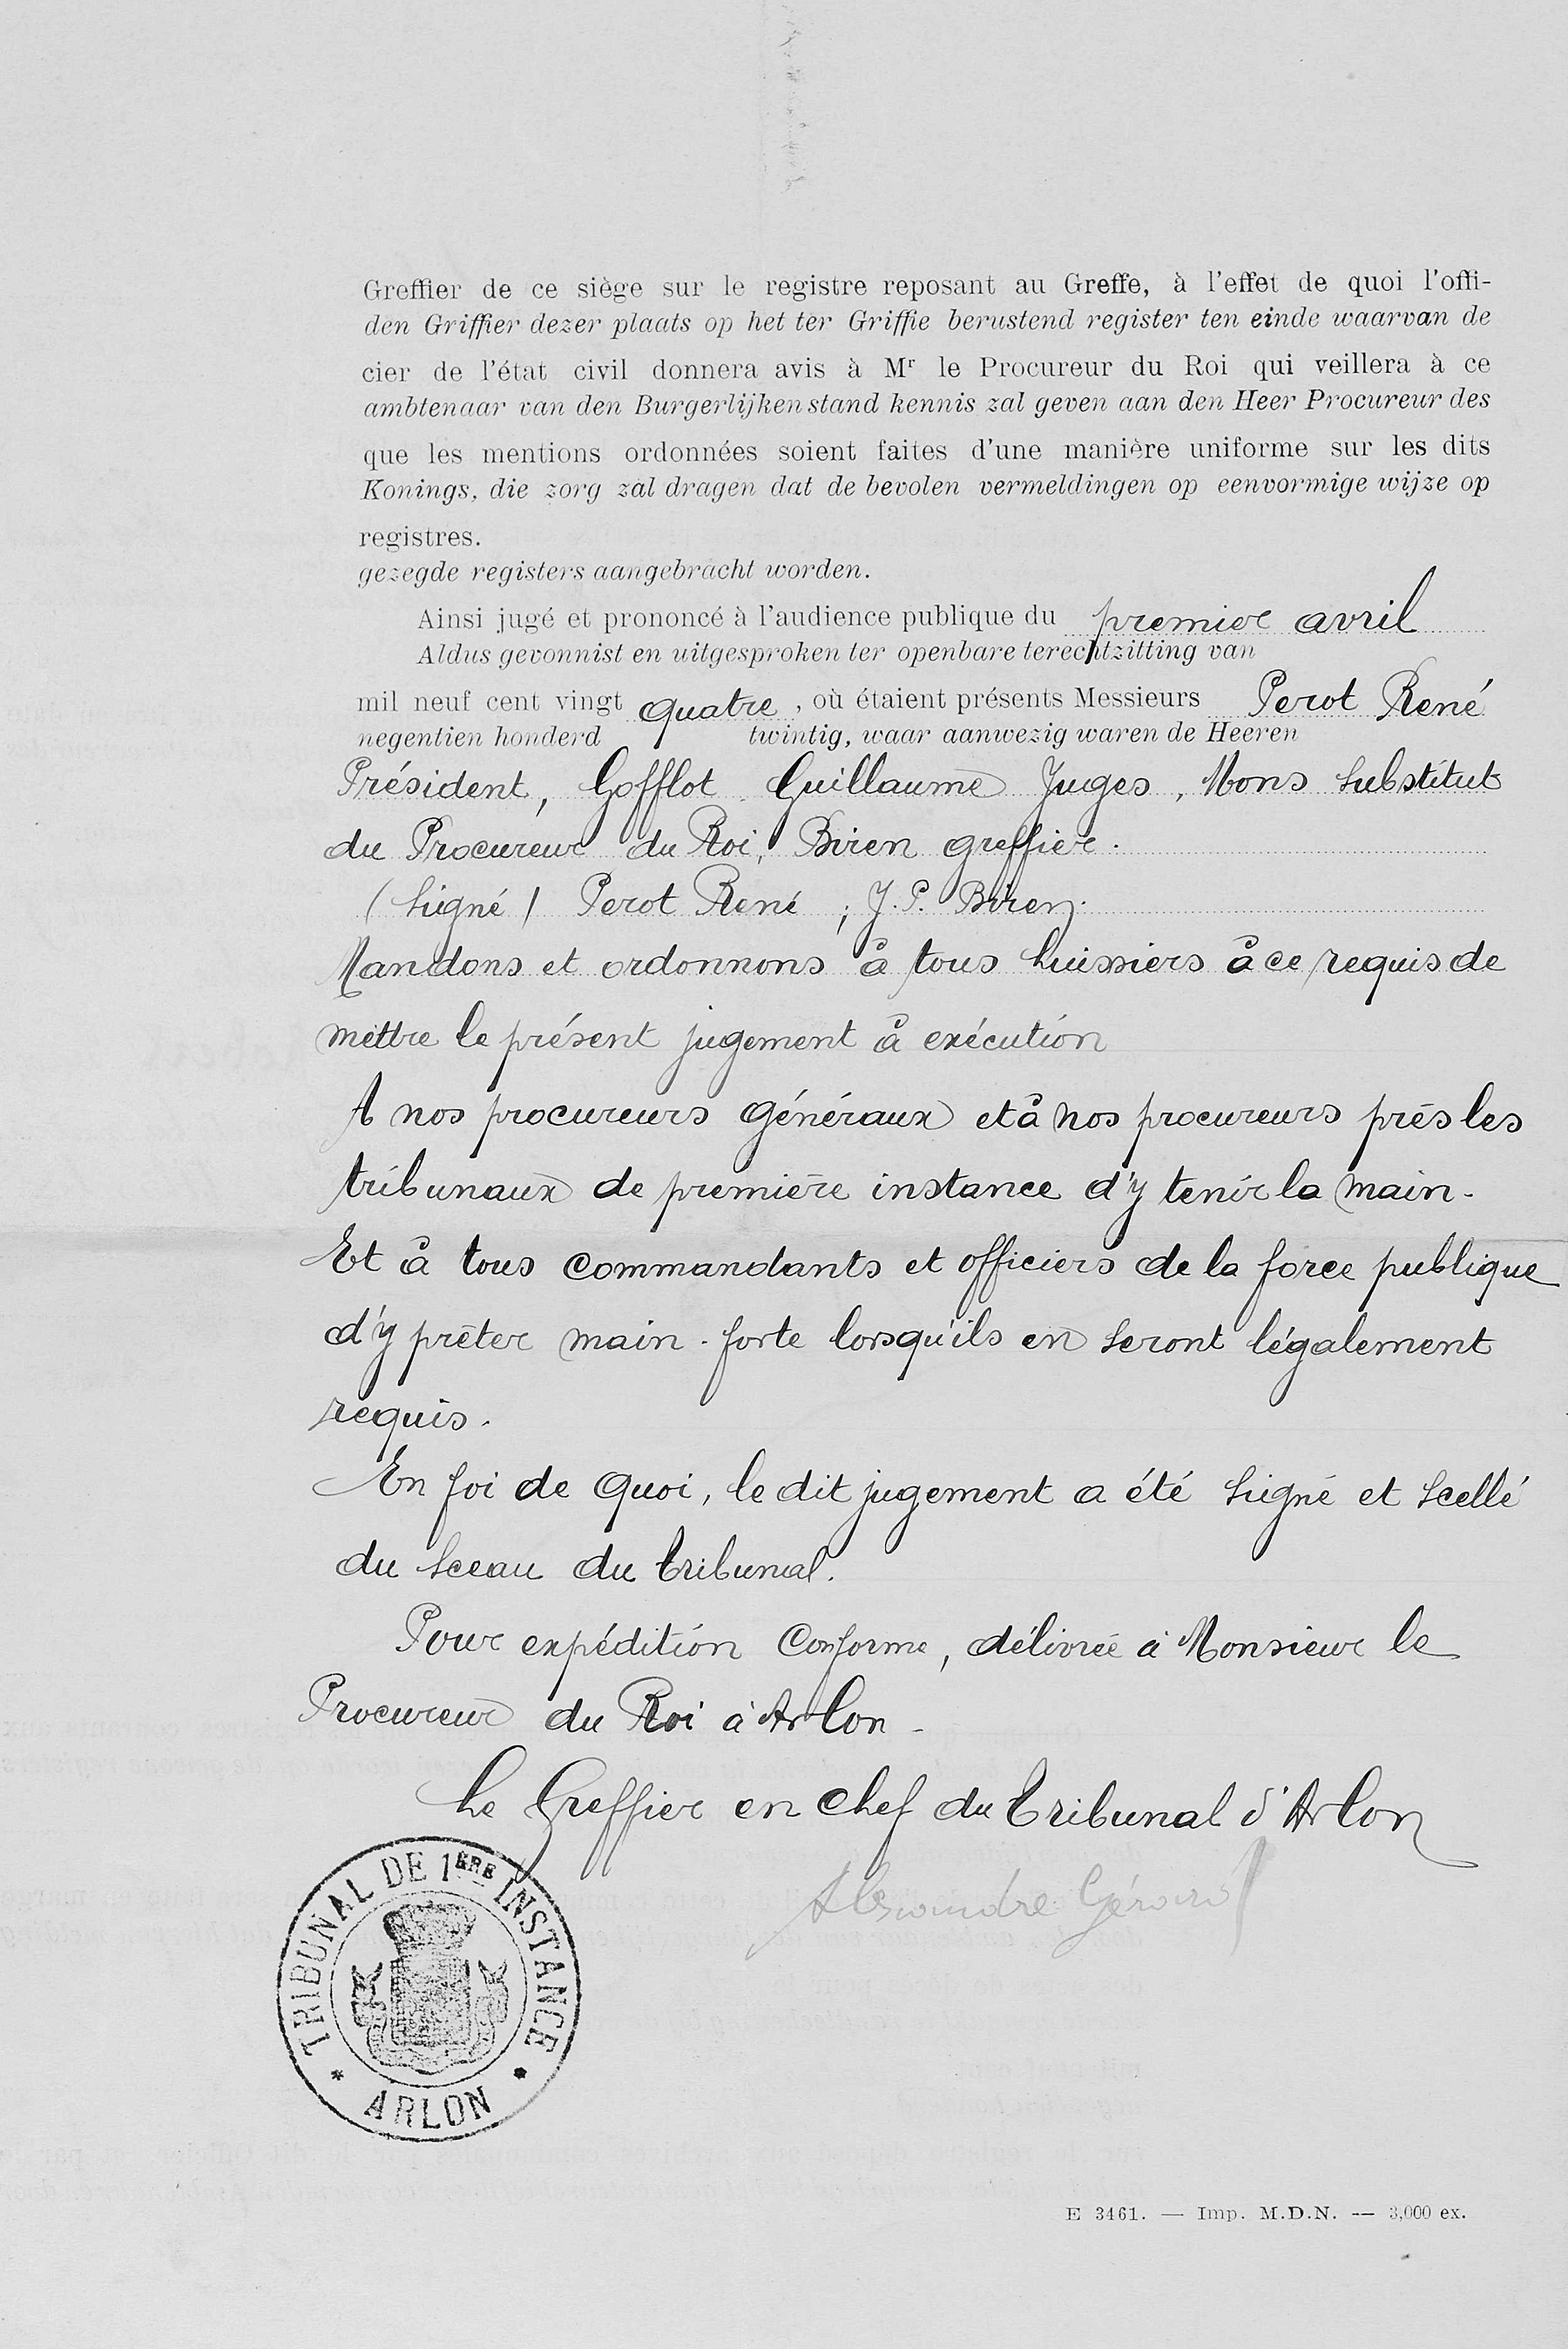 Greffier de ce siège sur le registre reposant au Greffe, à l'effet de quoi l'offi-
den Griffier dezer plaats op het ter Griffie berustend register ten einde waarvan de
cier de l'état civil donnera avis à Mr le Procureur du Roi qui veillera à ce
ambtenaar van den Burgerlijken stand kennis zal geven aan den Heer Procureur des
que les mentions ordonnées soient faites d'une manière uniforme sur les dits
Konings, die zorg zal dragen dat de bevolen vermeldingen op eenvormige wijze op
registres.
gezegde registers aangebracht worden.
Ainsi jugé et prononcé à l'audience publique du premier avril
Aldus gevonnist en uitgesproken ter openbare terechtzitting van
mil neuf cent vingt quatre, où étaient présents Messieurs Perot René
negentien honderd twintig, waar aanwezig waren de Heeren
Président, Gofflot Guillaume Juges, Mons Substitut
du Procureur du Roi, Biren greffier.
(Signé) Perot René ; J. P. Biren.
Mandons et ordonnons à tous huissiers à ce requis de
mettre le présent jugement à exécution
A nos procureurs généraux et à nos procureurs près les
tribunaux de première instance d'y tenir la main.
Et à tous commandants et officiers de la force publique
d'y prêter main-forte lorsqu'ils en seront légalement
requis.
En foi de quoi, le dit jugement a été signé et scellé
du sceau du tribunal.
Pour expédition conforme, délivrée à Monsieur le
Procureur du Roi à Arlon -
Le Greffier en chef du Tribunal d'Arlon
Alexandre Gérard
TRIBUNAL DE 1ÈRE INSTANCE
* ARLON *
E 3461. — Imp. M.D.N. — 3,000 ex.